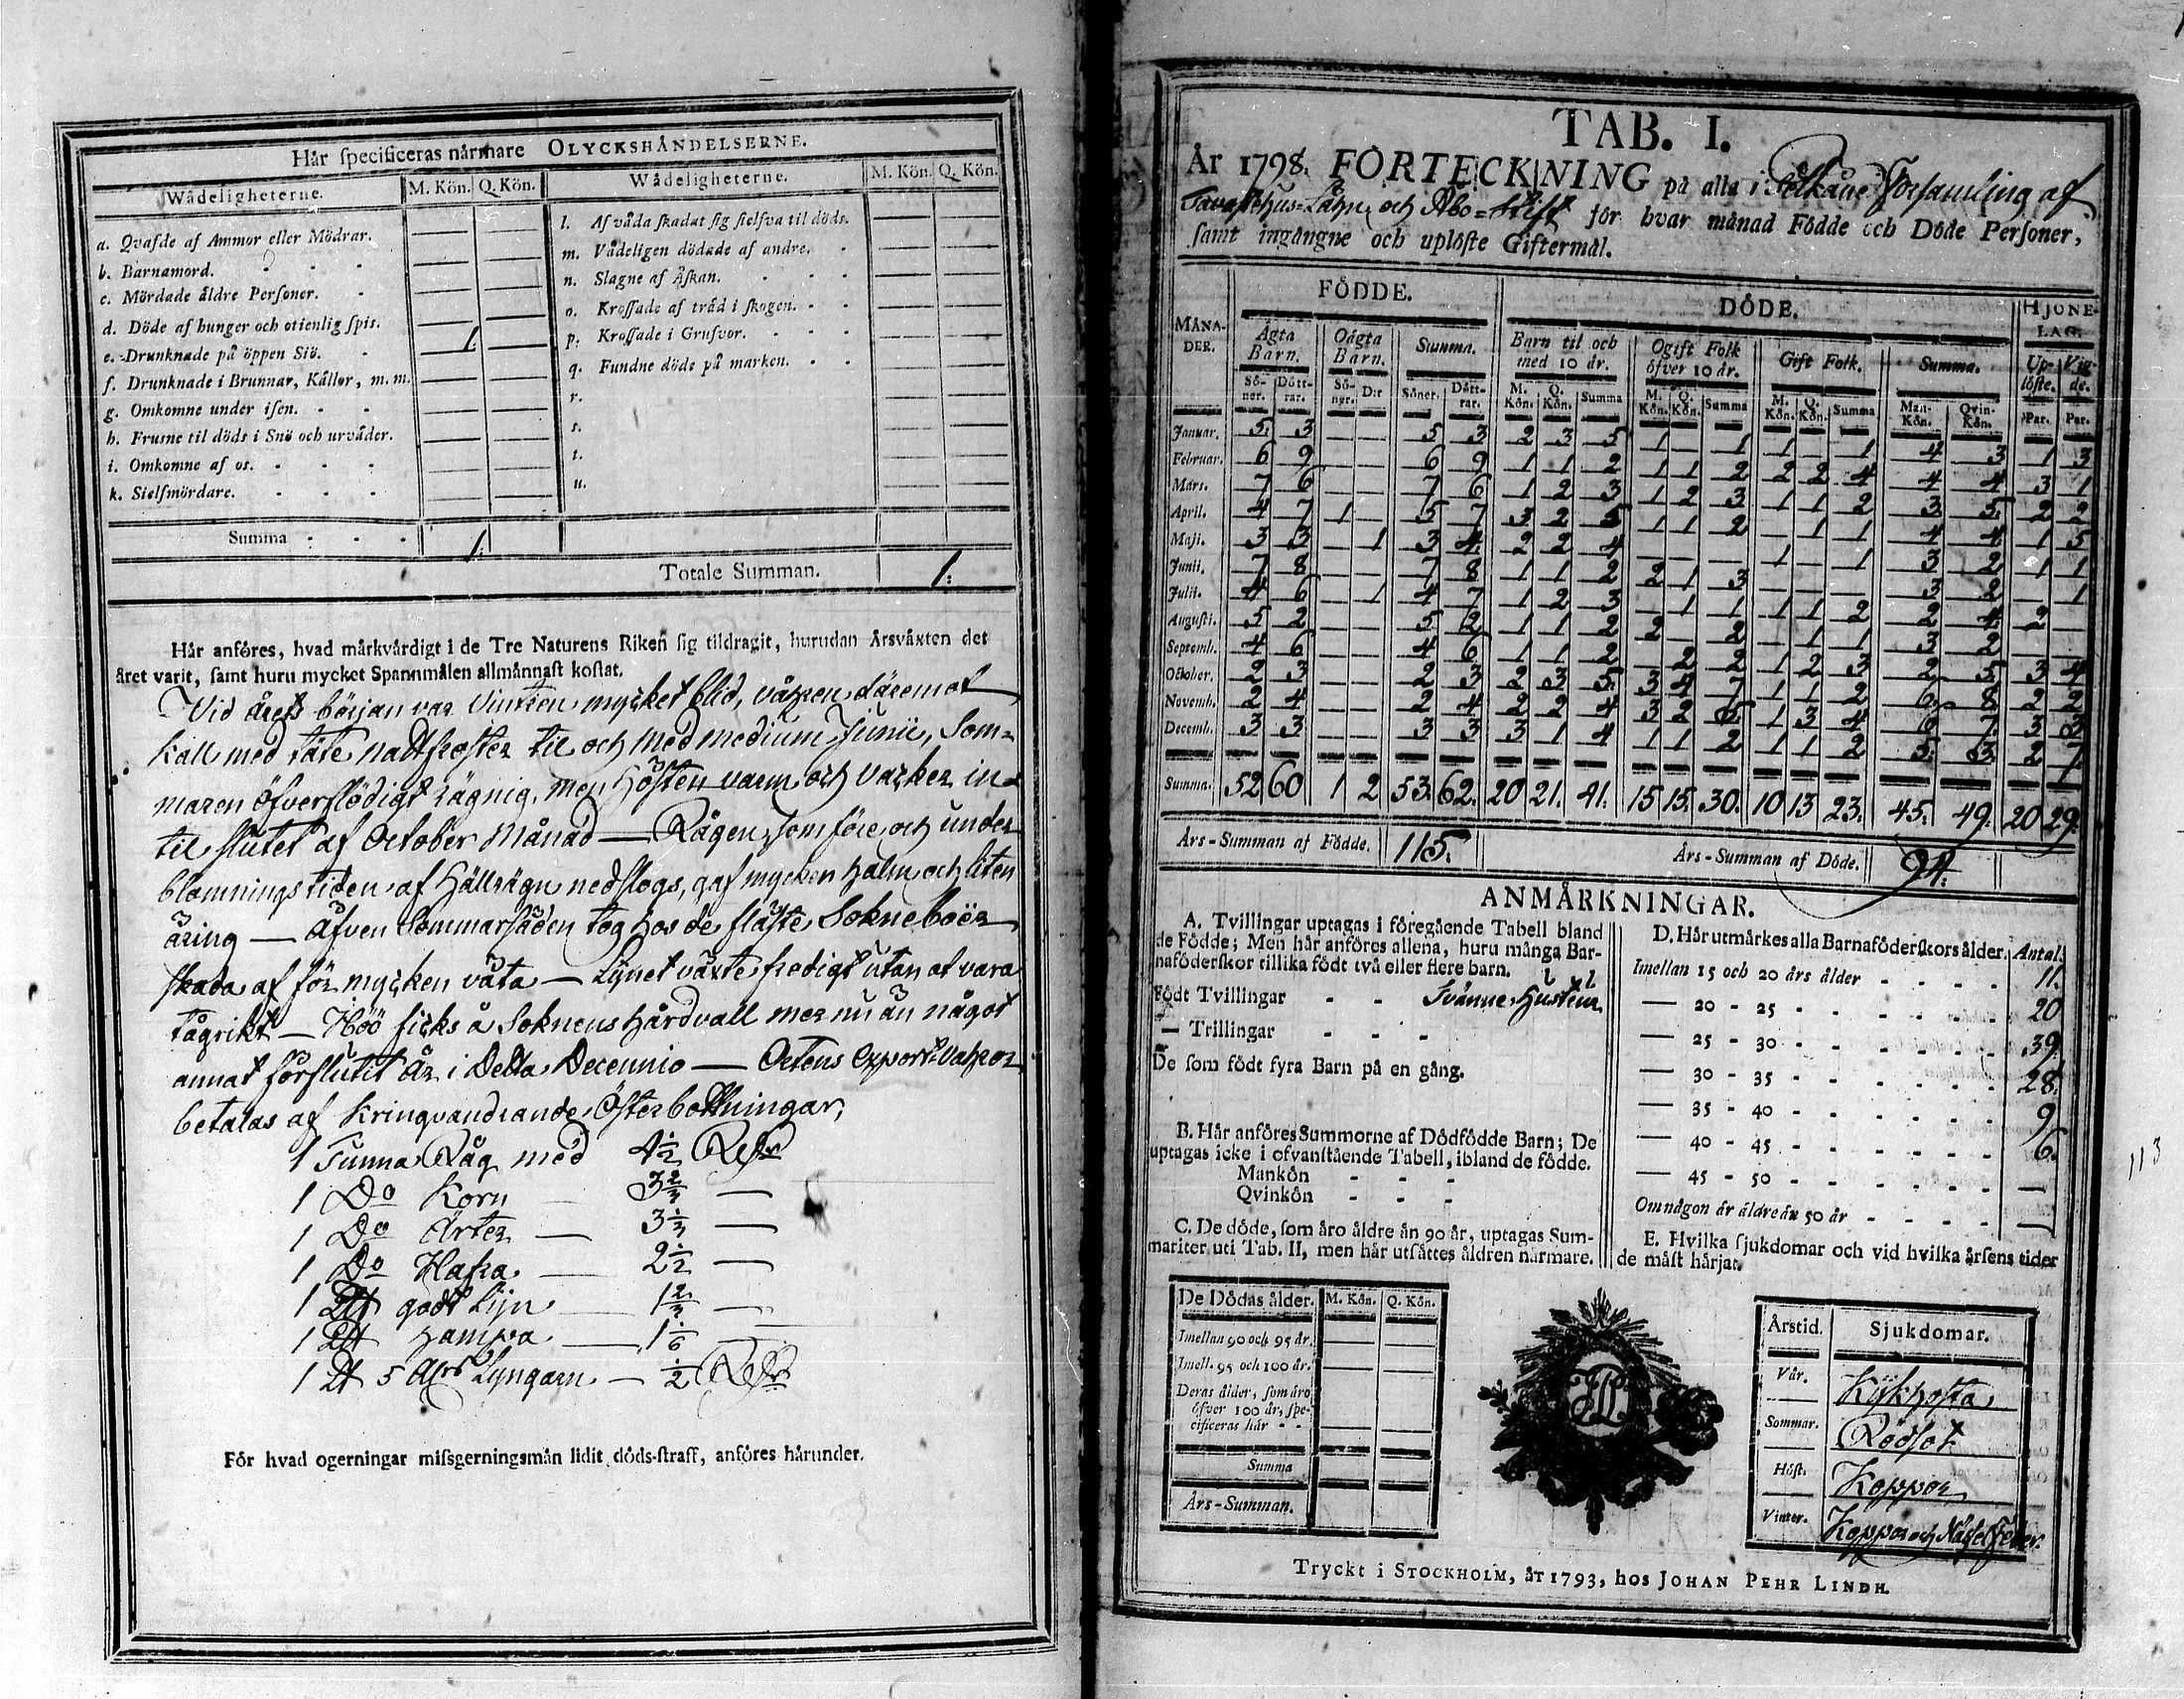 Här specificeras närmare OLYCKSHÄNDELSERNE.
Wådeligheterne. M. Kön. Q. Kön. Wådeligheterne. M. Kön. Q. Kön.
a. Qvafde af Ammor eller Mödrar. — — l. Af våda skadat sig sielfva til döds. — —
b. Barnamord. — — m. Vådeligen dödade af andre. — —
c. Mördade äldre Personer. — — n. Slagne af Åskan. — —
d. Döde af hunger och otienlig spis. — — o. Krossade af träd i skogen. — —
e. Drunknade på öppen Siö. 1 — p. Krossade i Grufvor. — —
f. Drunknade i Brunnar, Källor, m. m. — — q. Fundne döde på marken. — —
g. Omkomne under isen. — — r. — —
h. Frusne til döds i Snö och urväder. — — s. — —
i. Omkomne af os. — — t. — —
k. Sielfmördare. — — u. — —
Summa 1.
Totale Summan. 1.
Här anföres, hvad märkvärdigt i de Tre Naturens Riken sig tildragit, hurudan Årsväxten det
året varit, samt huru mycket Spannmålen allmännast kostat.
Vid årets början var Vintren mycket blid, våhren däremot
kall med täte nattfroster til och med medium Junii, Som-
maren öfverflödigt rägnig, men Hösten varm och vacker in-
til slutet af October Månad — Rågen, som före och under
blomningstiden af Hällrägn nedslogs, gaf mycken halm och liten
äring — Äfven Sommarsäden tog hos de fläste Sokneboër
skada af för mycken våta — Lijnet växte frodigt utan at vara
tågrikt — Höö ficks å Soknens Hårdvall mer nu än något
annat förflutit År i Detta Decennio — Ortens Export-Vahror
betalas af kringvandrande Österbottningar,
1 Tunna Råg med 4½ Rdr
1 Do Korn — 3⅔ —
1 Do Ärter — 3⅓ —
1 Do Hafra — 2½ —
1 godt Lijn — 1⅔ —
1 Hampa — 1/6 —
1 5 Lyngarn — ½ Rdr
För hvad ogerningar missgerningsmän lidit döds-straff, anföres härunder.
TAB. I.
År 1798. FÖRTECKNING på alla i Sälkäne Församling af
Tavastehus-Lähn och Åbo-Stift för hvar månad Födde och Döde Personer,
samt ingångne och uplöste Giftermål.
MÅNADER. FÖDDE. DÖDE. HJONELAG.
Ägta Barn. Oägta Barn. Summa. Barn til och med 10 år. Ogift Folk öfver 10 år. Gift Folk. Summa. Uplöste. Vigde.
Söner. Döttrar. Söner. D:r Söner. Döttrar. M. Kön. Q. Kön. Summa M. Kön. Q. Kön. Summa M. Kön. Q. Kön. Summa Man-Kön. Qvin-Kön. Par. Par.
Januar. 5 3 — — 5 3 2 3 5 1 — 1 1 — 1 4 3 1 3
Februar. 6 9 — — 6 9 1 1 2 1 1 2 2 2 4 4 4 3 1
Mars. 7 6 — — 7 6 1 2 3 1 2 3 1 1 2 3 5 2 2
April. 4 7 1 — 5 7 3 2 5 1 1 2 — 1 1 4 4 1 5
Maji. 3 3 — 1 3 4 2 2 4 — — — 1 — 1 3 2 1 1
Junii. 7 8 — — 7 8 1 1 2 2 1 3 — — — 3 2 — 1
Julii. 4 6 — 1 4 7 1 2 3 — 1 1 1 1 2 2 4 2 —
Augusti. 5 2 — — 5 2 1 1 2 2 — 2 — 1 1 3 2 — —
Septemb. 4 6 — — 4 6 1 1 2 — 2 2 1 2 3 2 5 3 4
October. 2 3 — — 2 3 2 3 5 3 4 7 1 1 2 6 8 2 2
Novemb. 2 4 — — 2 4 2 2 4 3 2 5 1 3 4 6 7 3 3
Decemb. 3 3 — — 3 3 3 1 4 1 1 2 1 1 2 5 3 2 7
Summa. 52 60 1 2 53. 62. 20 21. 41. 15 15. 30. 10 13 23. 45. 49. 20 29.
Års-Summan af Födde. 115. Års-Summan af Döde. 94.
ANMÄRKNINGAR.
A. Tvillingar uptagas i föregående Tabell bland
de Födde; Men här anföres allena, huru många Bar-
naföderskor tillika födt två eller flere barn.
Födt Tvillingar - - Tvänne Hustrur
— Trillingar - - -
De som födt fyra Barn på en gång.
B. Här anföres Summorne af Dödfödde Barn; De
uptagas icke i ofvanstående Tabell, ibland de födde.
Mankön - - -
Qvinkön - - -
C. De döde, som äro äldre än 90 år, uptagas Sum-
mariter uti Tab. II, men här utsättes åldren närmare.
D. Här utmärkes alla Barnaföderskors ålder. Antal.
Imellan 15 och 20 års ålder 11.
— 20 - 25 20
— 25 - 30 39
— 30 - 35 28.
— 35 - 40 9
— 40 - 45 6.
— 45 - 50 —
Om någon är äldre än 50 år —
E. Hvilka sjukdomar och vid hvilka årsens tider
de mäst härjat.
De Dödas ålder. M. Kön. Q. Kön.
Imellan 90 och 95 år. — —
Imell. 95 och 100 år. — —
Deras ålder, som äro
öfver 100 år, spe-
cificeras här - - — —
Summa
Års-Summan.
Årstid. Sjukdomar.
Vår. Kijkhosta
Sommar. Rödsot
Höst. Koppor
Vinter. Koppor och Feber.
Tryckt i STOCKHOLM, år 1793, hos JOHAN PEHR LINDH.
113